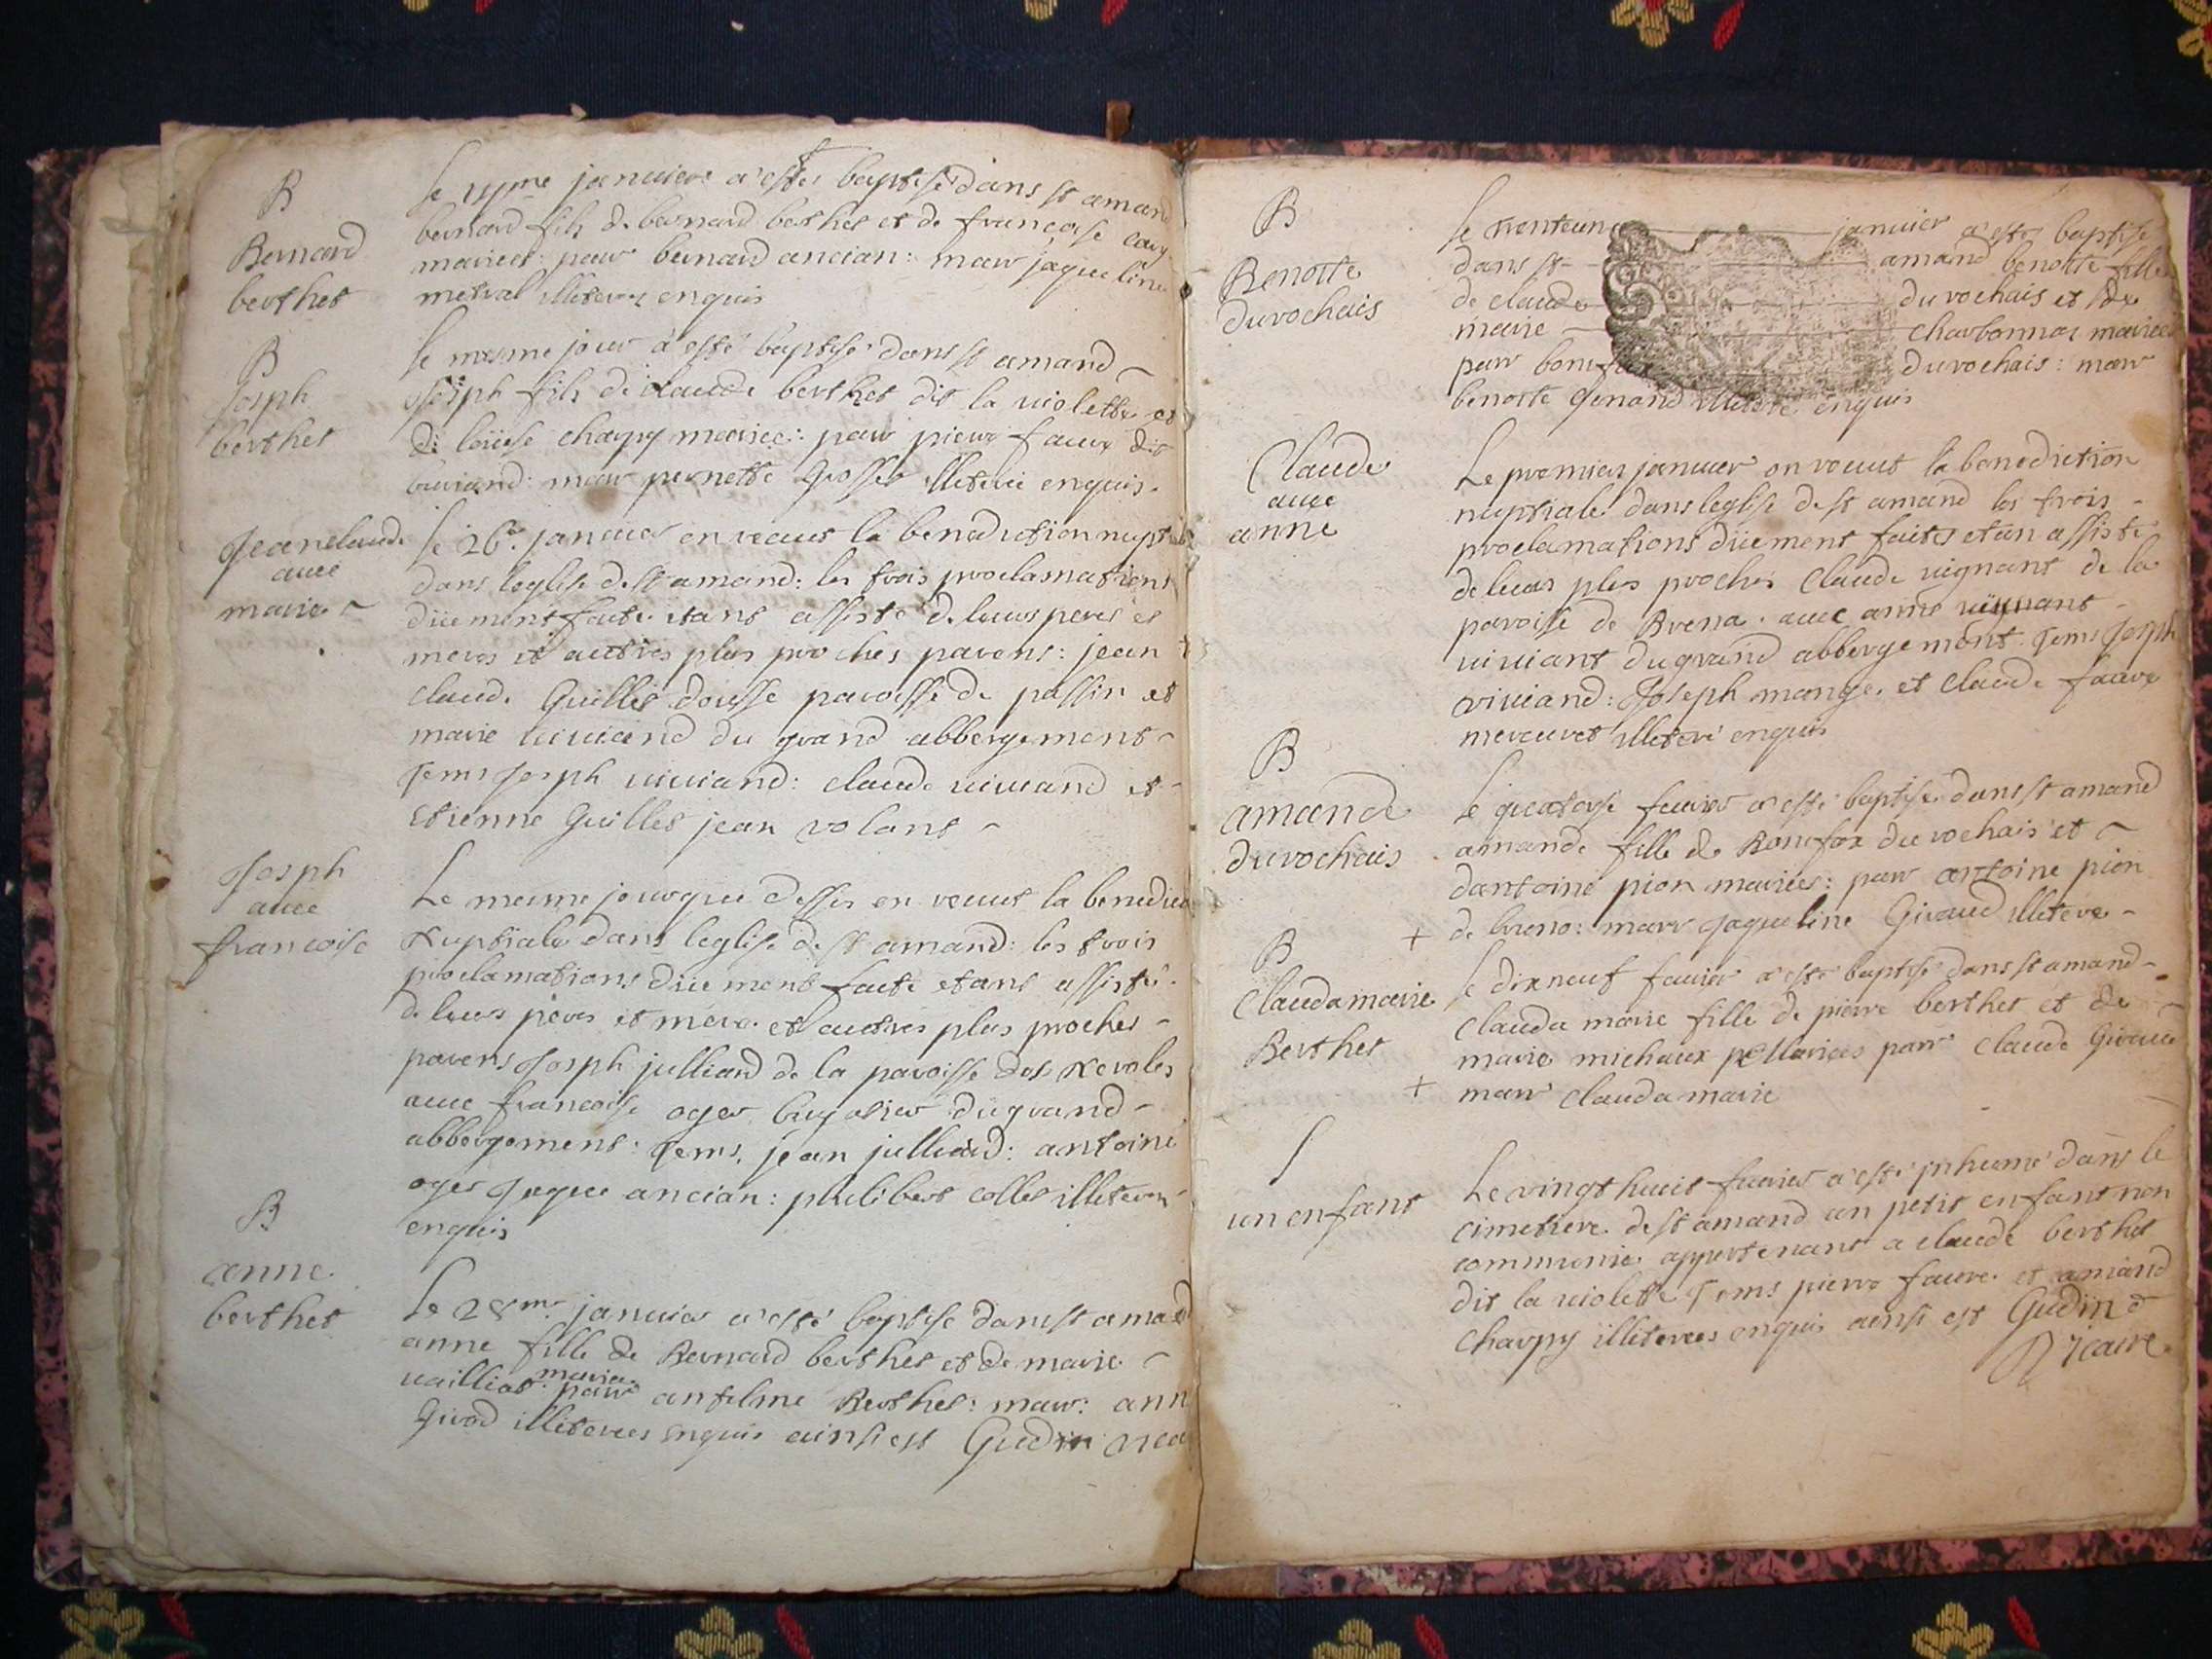 B
Bernard
berthet
januiere a estes baptise dans st amand
bernard fils de bernard berthet et de francoise
mariees: parr bernard ancian: marr jaqueline
metral illiteres enquis
B
Joseph
berthet
le mesme jour a esté baptisé dans st amand
joseph fils de claude berthet dit la violette et
de louise charpy mariee: parr pierre faure dit
marr pernette Grosset illiteré enquis.
Jeanclaude
auec
marie
le 26e januier on receut la benediction nupt
dans leglise de st amand: les trois proclamations
düement faite etant assisté de leurs peres et
meres et autres plus proches parens: jean
claude Guillet dousse paroisse de passin et
marie uiuiand du grand abbergement
Tems Joseph uiuiand: claude uiuiand et
etienne Guillet jean volant
Joseph
auec
francoise
Le mesme jour que dessus on receut la benedic
nuptiale dans leglise de st amand: les trois
proclamations düement faite etant assisté
de leurs peres et mere et autres plus proches
parens Joseph julliand de la paroisse des neroles
auec francoise oger du grand
abbergement: Tems, jean julliard: antoine
oger Jaque ancian: philibert collet illiteres
enquis
B
anne
berthet
Le 28me januier a esté baptise dans st amand
anne fille de Bernard berthet et de marie
mariee
uailliot parr antelme Berthet: marr: ann
Girod illiterees enquis ainsi est Gudin vica
B
Benoite
duvochais
le trenteun januier a estes baptisee
dans st amand benoite fille
de claude duvochais et de
marie charbonnar mariees
parr bonifax duvochais: marr
benoite Genand illiteré enquis
Claude
auec
anne
Le premier januier on receut la benediction
nuptiale dans leglise de st amand les trois
proclamations düement faites etan assisté
de leurs plus proches Claude uignant de la
paroisse de Brena auec anne
uiuiant du grand abbergement. Tems Joseph
viuiand: Joseph monge. et claude faure
illiteré enquis
B
amande
duvochais
le quatorse feurier a esté baptisee dans st amand
amande fille de Bonifax duvochais et
dantoine pion mariees: parr antoine pion
+ de breno: marr Jaqueline Giraud illitere
B
Claudamarie
Berthet
le dixneuf feurier a esté baptisé dans st amand
Clauda marie fille de pierre berthet et de
marie michaux mariees parr claude Giraud
+ marr clauda marie
S
un enfant
Le vingt huit feurier a esté inhumé dans le
cimetiere de st amand un petit enfant non
communié appartenant a claude berthet
dit la violette Tems pierre faure et amand
charpy illiterees enquis ainsi est Gudin
vicaire